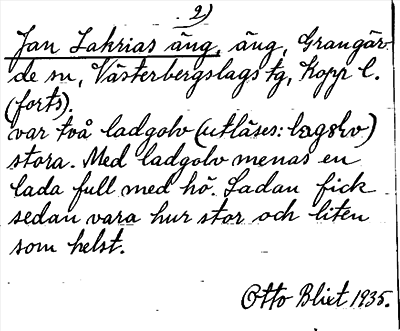 2)
Jan Lahrias äng, äng, Grangär-
de sn, Västerbergslags tg, Kopp l.
(forts).
var två ladgolv (utläses: lagɐlv)
stora. Med ladgolv menas en
lada full med hö. Ladan fick
sedan vara hur stor och liten
som helst.
Otto Blixt 1935.